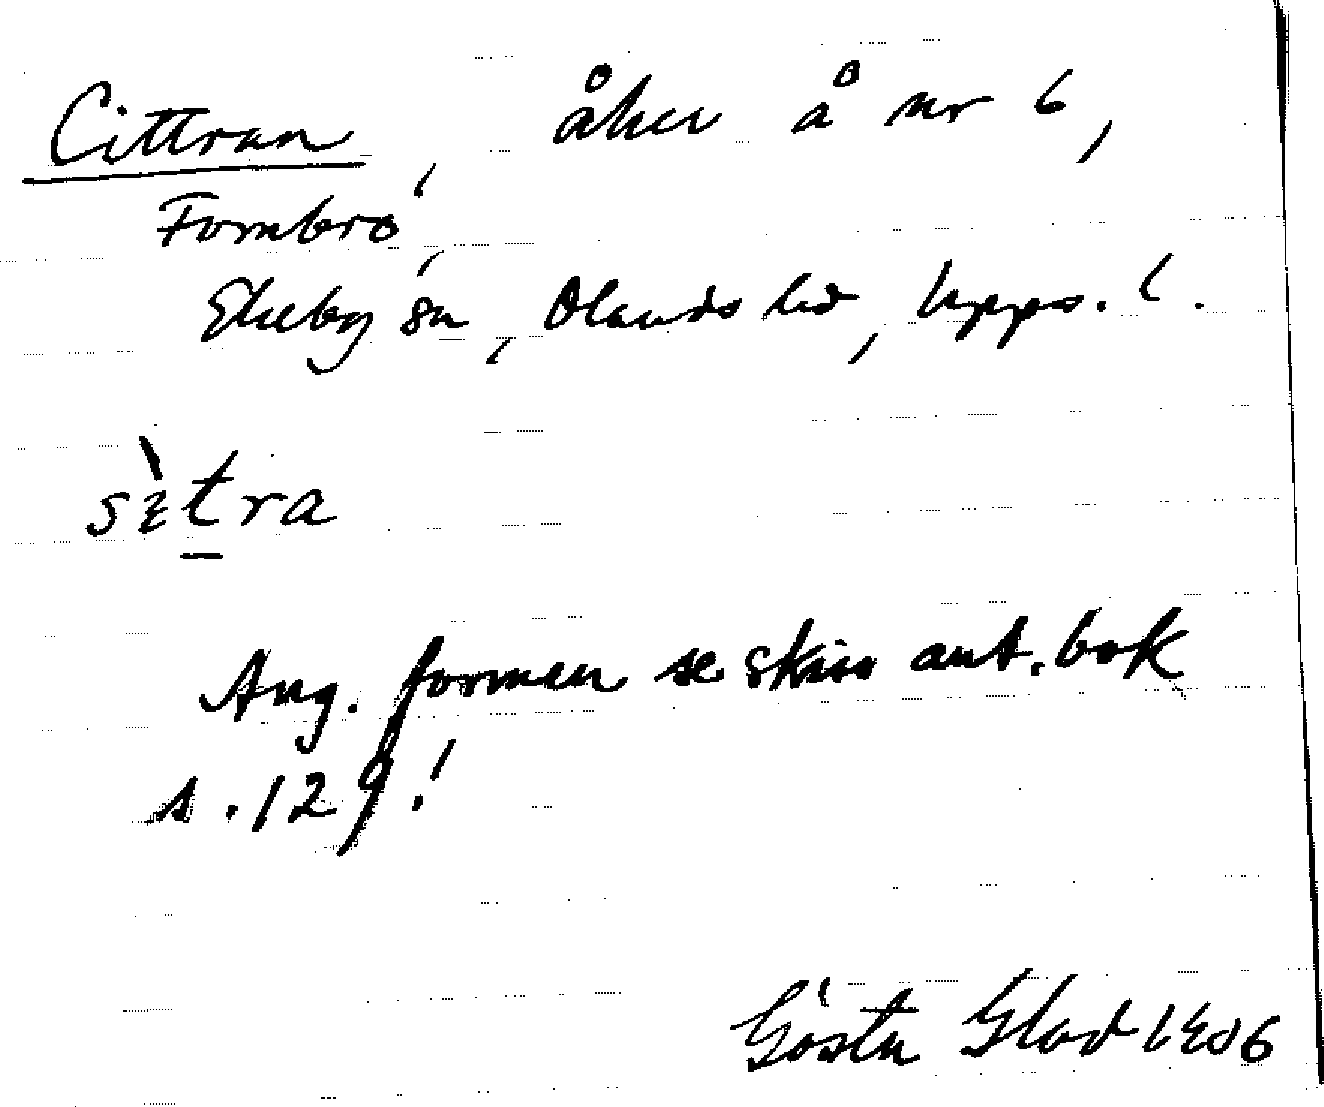 Cittran, åker å nr 6,
Fornbro,
Ekeby sn, Olands hd, Upps. l.
sὲtra
Ang. formen se skin ant.bok
s. 129!
Gösta Glad 1906